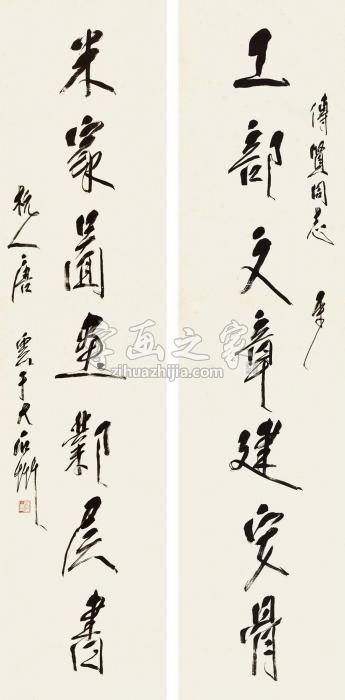 傳賢同志
工部文章建安骨
米家圖畫鄴侯書
杭人唐雲于大石
字画之家
zihuazhijia.com